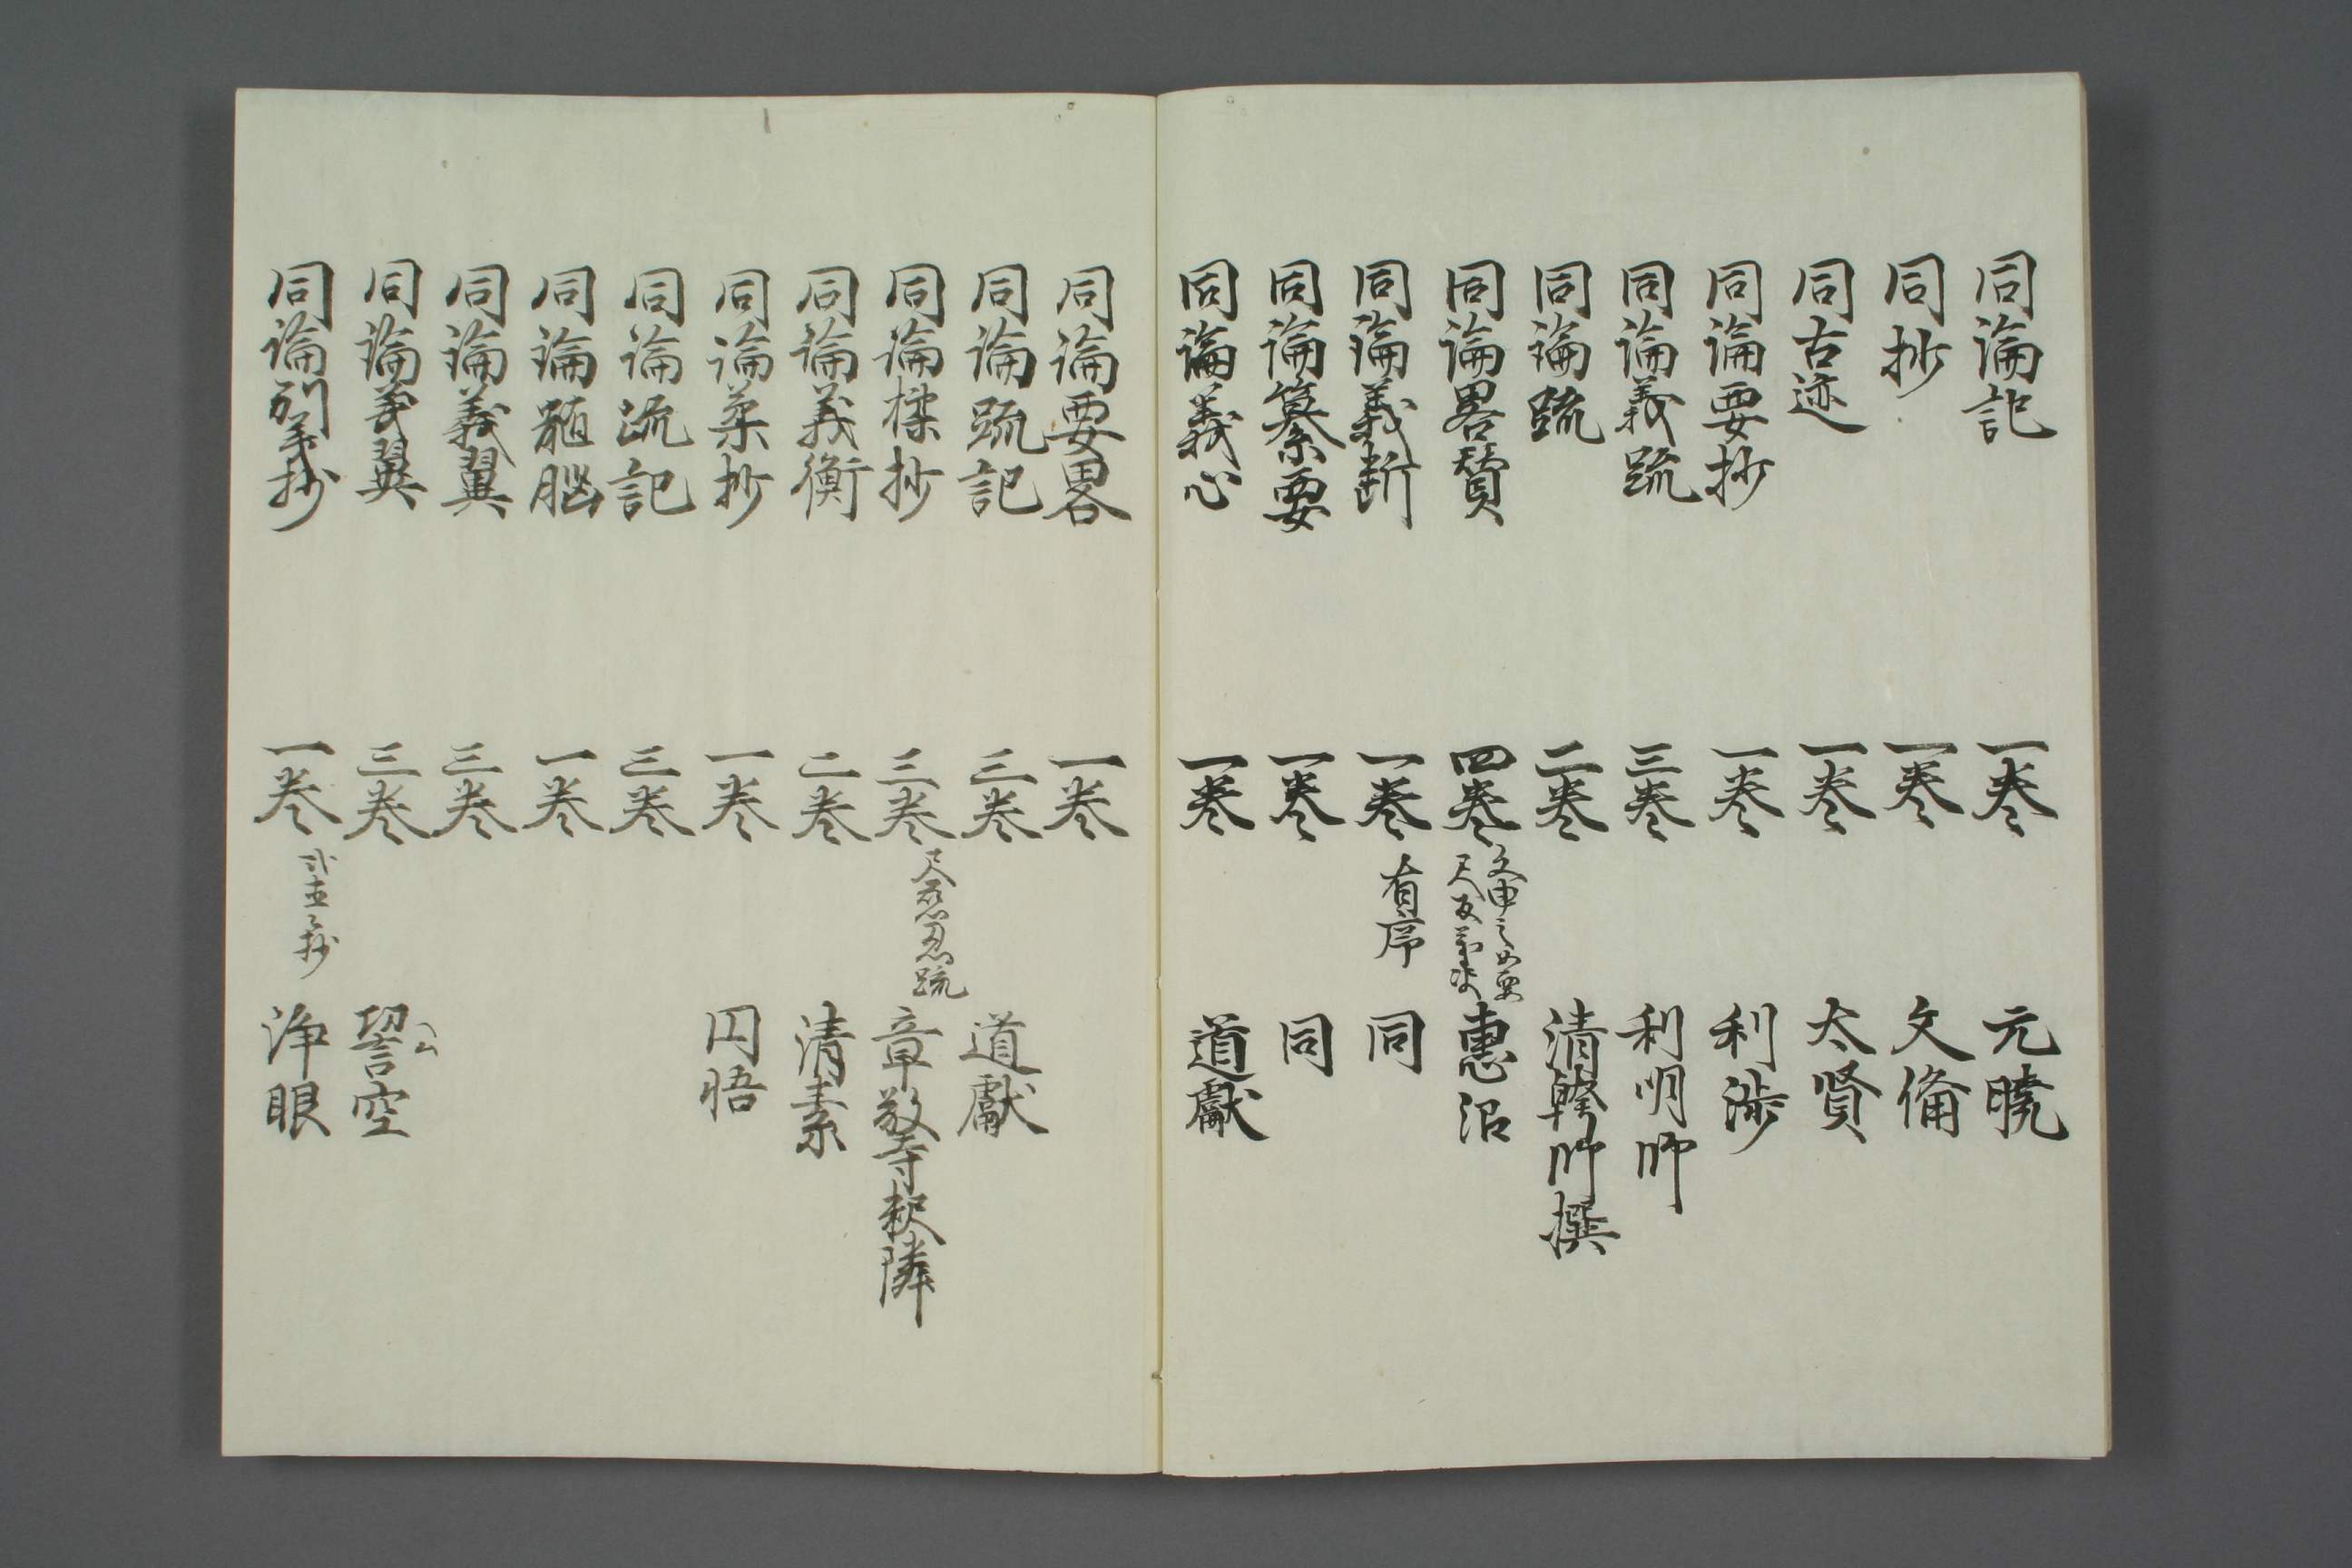 同論記 一巻 元暁
同抄 一巻 文備
同古迹 一巻 太賢
同論要抄 一巻 利渉
同論義疏 三巻 利明師
同論疏 二巻 清幹師撰
同論畧賛 四巻 惠沼
同論義断 一巻 有序 同
同論纂要 一巻 同
同論義心 一巻 道獻
同論要畧 一巻
同論疏記 三巻 道獻
同論糅抄 三巻 章敬寺釈隣
同論義衡 二巻 清素
同論義抄 一巻 円悟
同論疏記 三巻
同論髄脳 一巻
同論義翼 三巻
同論義翼 三巻 誓空
同論別義抄 一巻 浄眼